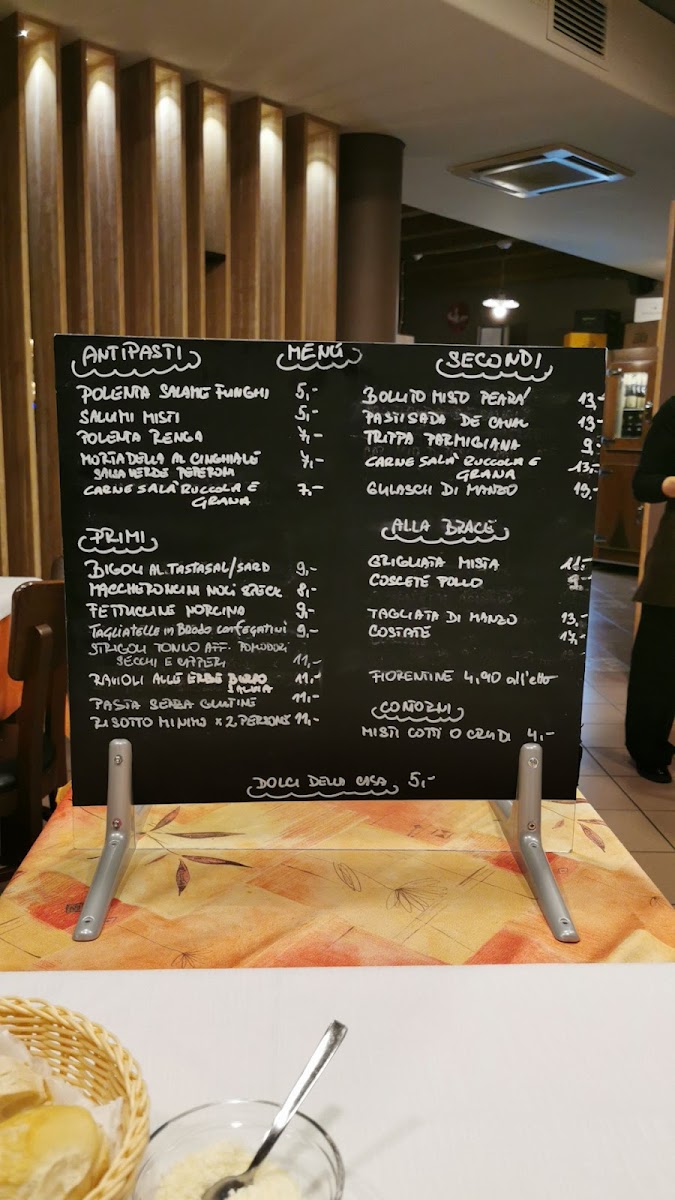 MENÚ
ANTIPASTI
POLENTA SALAME FUNGHI 5,-
SALUMI MISTI 5,-
POLENTA RENGA 7,-
MORTADELLA AL CINGHIALE 7,-
SALSA VERDE PEPERONI
CARNE SALÀ RUCCOLA E 7,-
GRANA
PRIMI
BIGOLI AL TASTASAL/SARD 9,-
MACCHERONCINI NOCI SPECK 8,-
FETTUCCINE NORCINA 9,-
TAGLIATELLE in BRODO con FEGATINI 9,-
STRIGOLI TONNO AFF. POMODORI
SECCHI E CAPPERI 11,-
RAVIOLI ALLE ERBE BURRO 11,-
SALVIA
PASTA SENZA GLUTINE 11,-
RISOTTO MINIMO x 2 PERSONE 11,-
SECONDI
BOLLITO MISTO PEARÀ 13,-
PASTISADA DE CAVAL 13,-
TRIPPA PARMIGIANA 9,-
CARNE SALÀ RUCCOLA E 13,-
GRANA
GULASCH DI MANZO 19,-
ALLA BRACE
GRIGLIATA MISTA
COSCETE POLLO 9,-
TAGLIATA DI MANZO 13,-
COSTATE 17,-
FIORENTINE 4,90 all'etto
CONTORNI
MISTI COTTI O CRUDI 4,-
DOLCI DELLA CASA 5,-